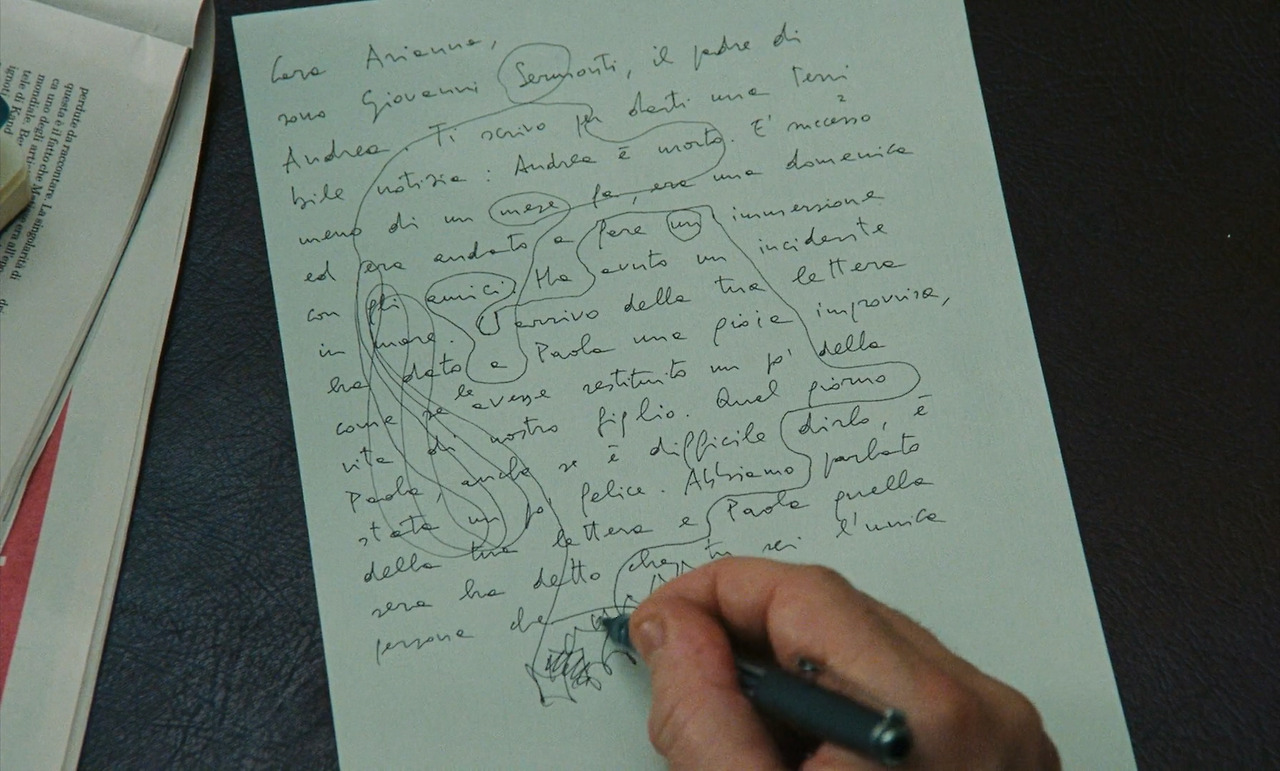 Cara Arianna,
sono Giovanni Sermonti, il padre di
Andrea. Ti scrivo per darti una terri
bile notizia: Andrea è morto. E' successo
meno di un mese fa, era una domenica
ed era andato a fare un immersione
con gli amici. Ha avuto un incidente
in mare. L'arrivo della tua lettera
ha dato a Paola una gioia improvvisa,
come se le avesse restituito un po' della
vita di nostro figlio. Quel giorno
Paola, anche se è difficile dirlo, è
stata un po' felice. Abbiamo parlato
della tua lettera e Paola quella
sera ha detto che tu sei l'unica
persona che
perdute da raccontare. La singolarità di
questa è il fatto che
ca uno degli
mondiale. Per
tele di
ignoti